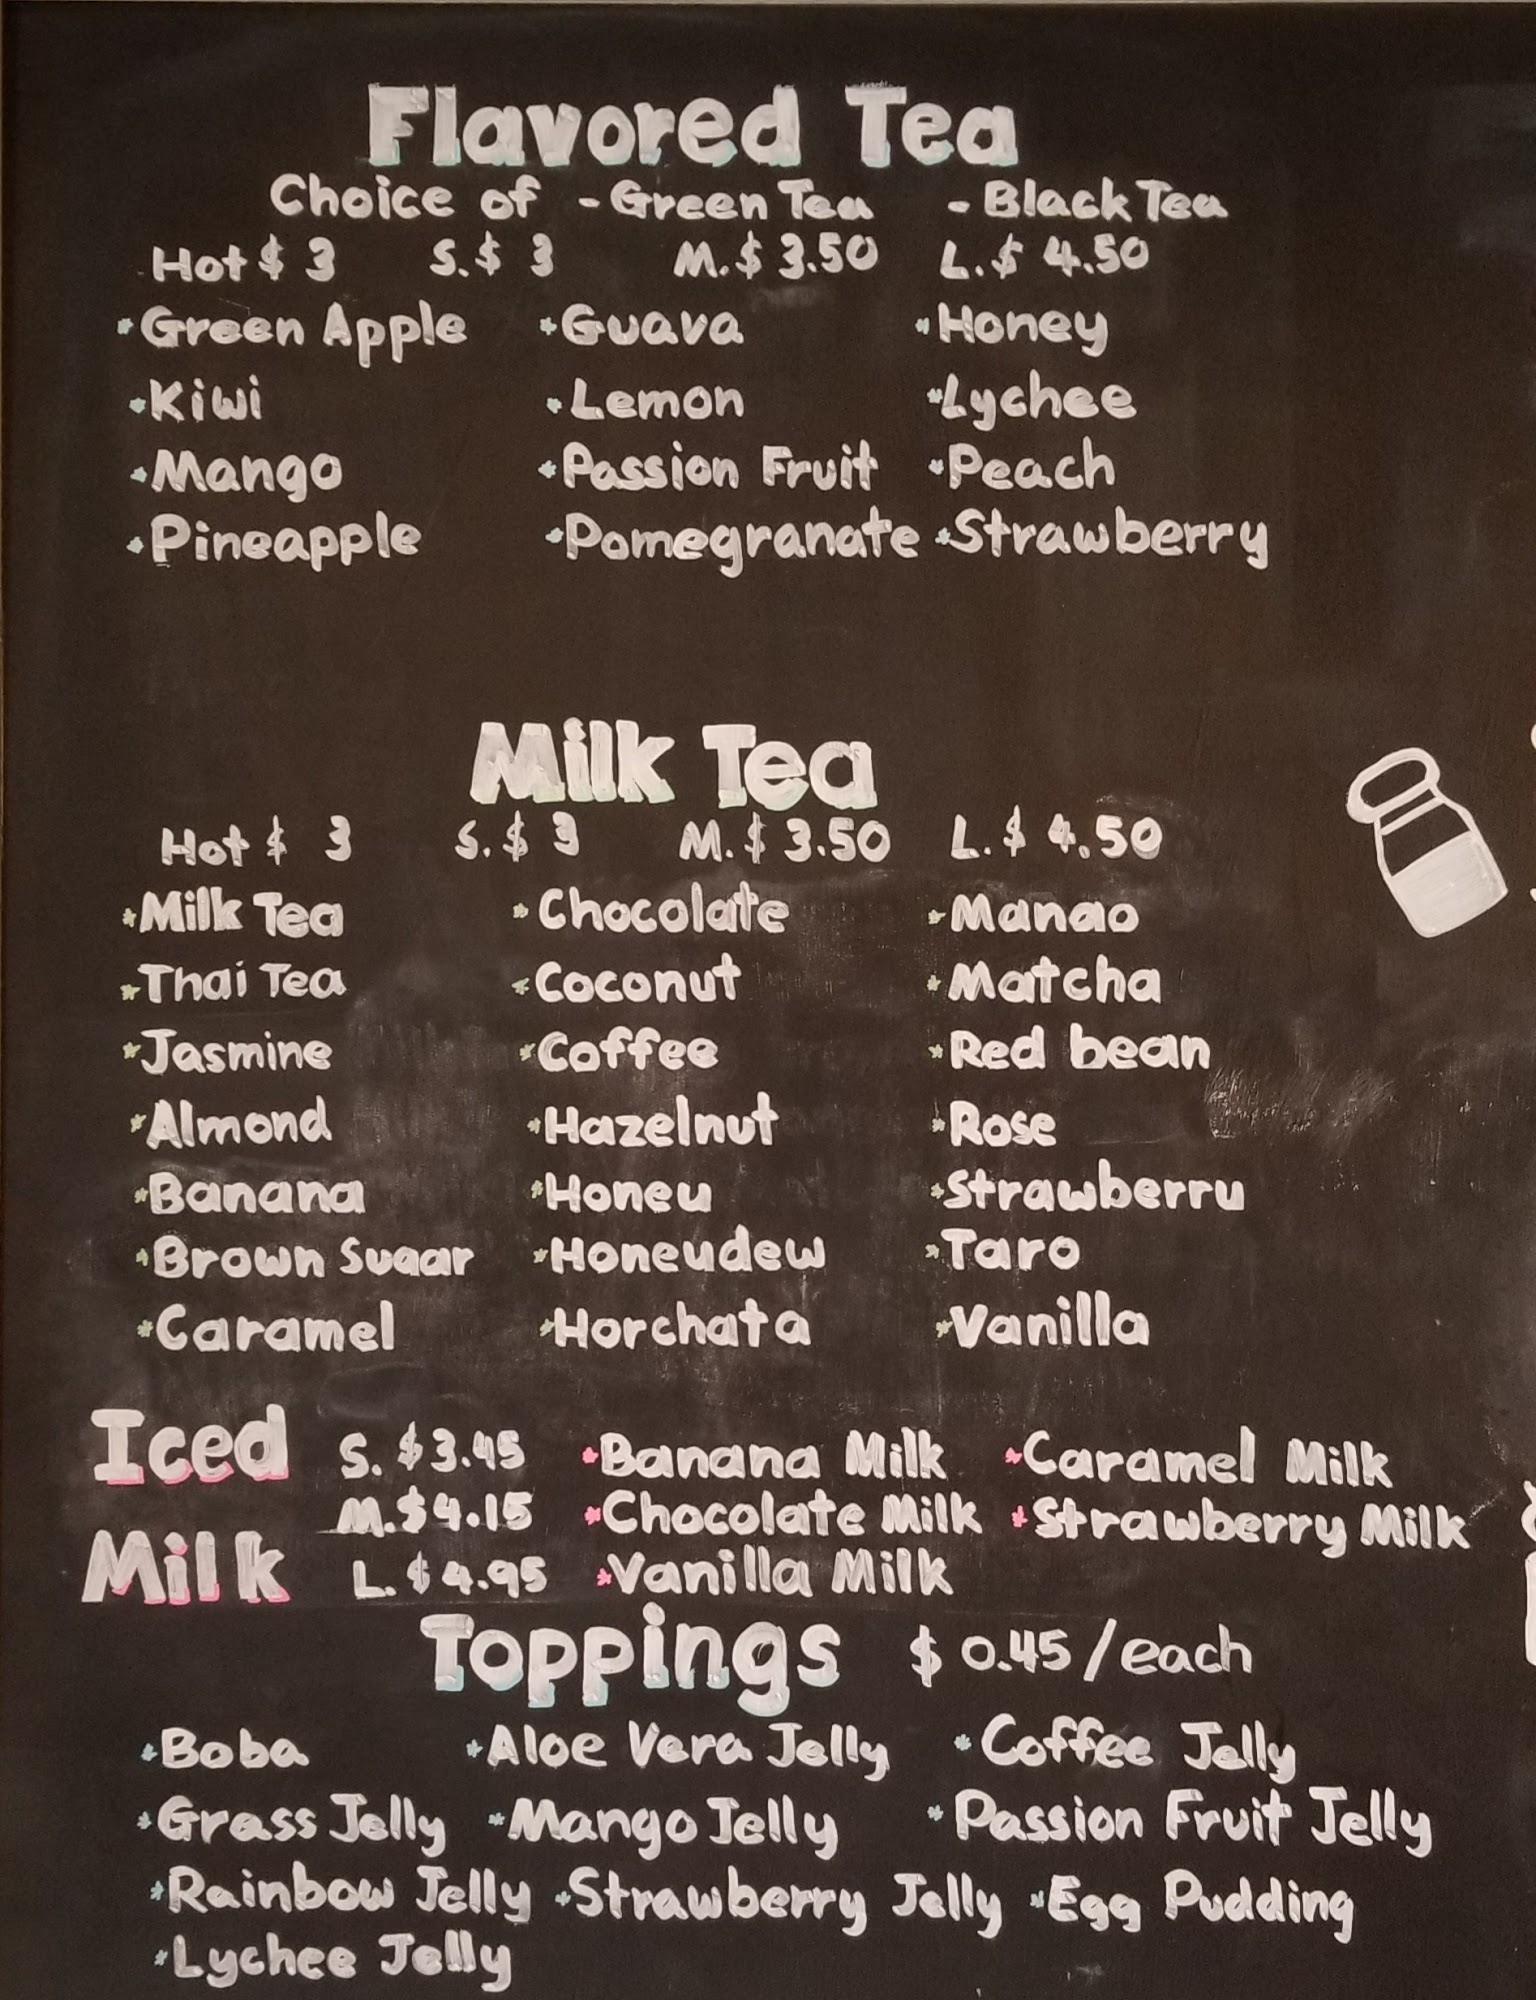 Flavored Tea
Choice of - Green Tea - Black Tea
Hot $ 3 S. $ 3 M. $ 3.50 L. $ 4.50
*Green Apple *Guava *Honey
*Kiwi *Lemon *Lychee
*Mango *Passion Fruit *Peach
*Pineapple *Pomegranate *Strawberry
Milk Tea
Hot $ 3 S. $ 3 M. $ 3.50 L. $ 4.50
*Milk Tea *Chocolate *Mango
*Thai Tea *Coconut *Matcha
*Jasmine *Coffee *Red bean
*Almond *Hazelnut *Rose
*Banana *Honey *Strawberry
*Brown Sugar *Honeydew *Taro
*Caramel *Horchata *Vanilla
Iced Milk
S. $3.45 *Banana Milk *Caramel Milk
M. $4.15 *Chocolate Milk *Strawberry Milk
L. $4.95 *Vanilla Milk
Toppings $ 0.45/each
*Boba *Aloe Vera Jelly *Coffee Jelly
*Grass Jelly *Mango Jelly *Passion Fruit Jelly
*Rainbow Jelly *Strawberry Jelly *Egg Pudding
*Lychee Jelly